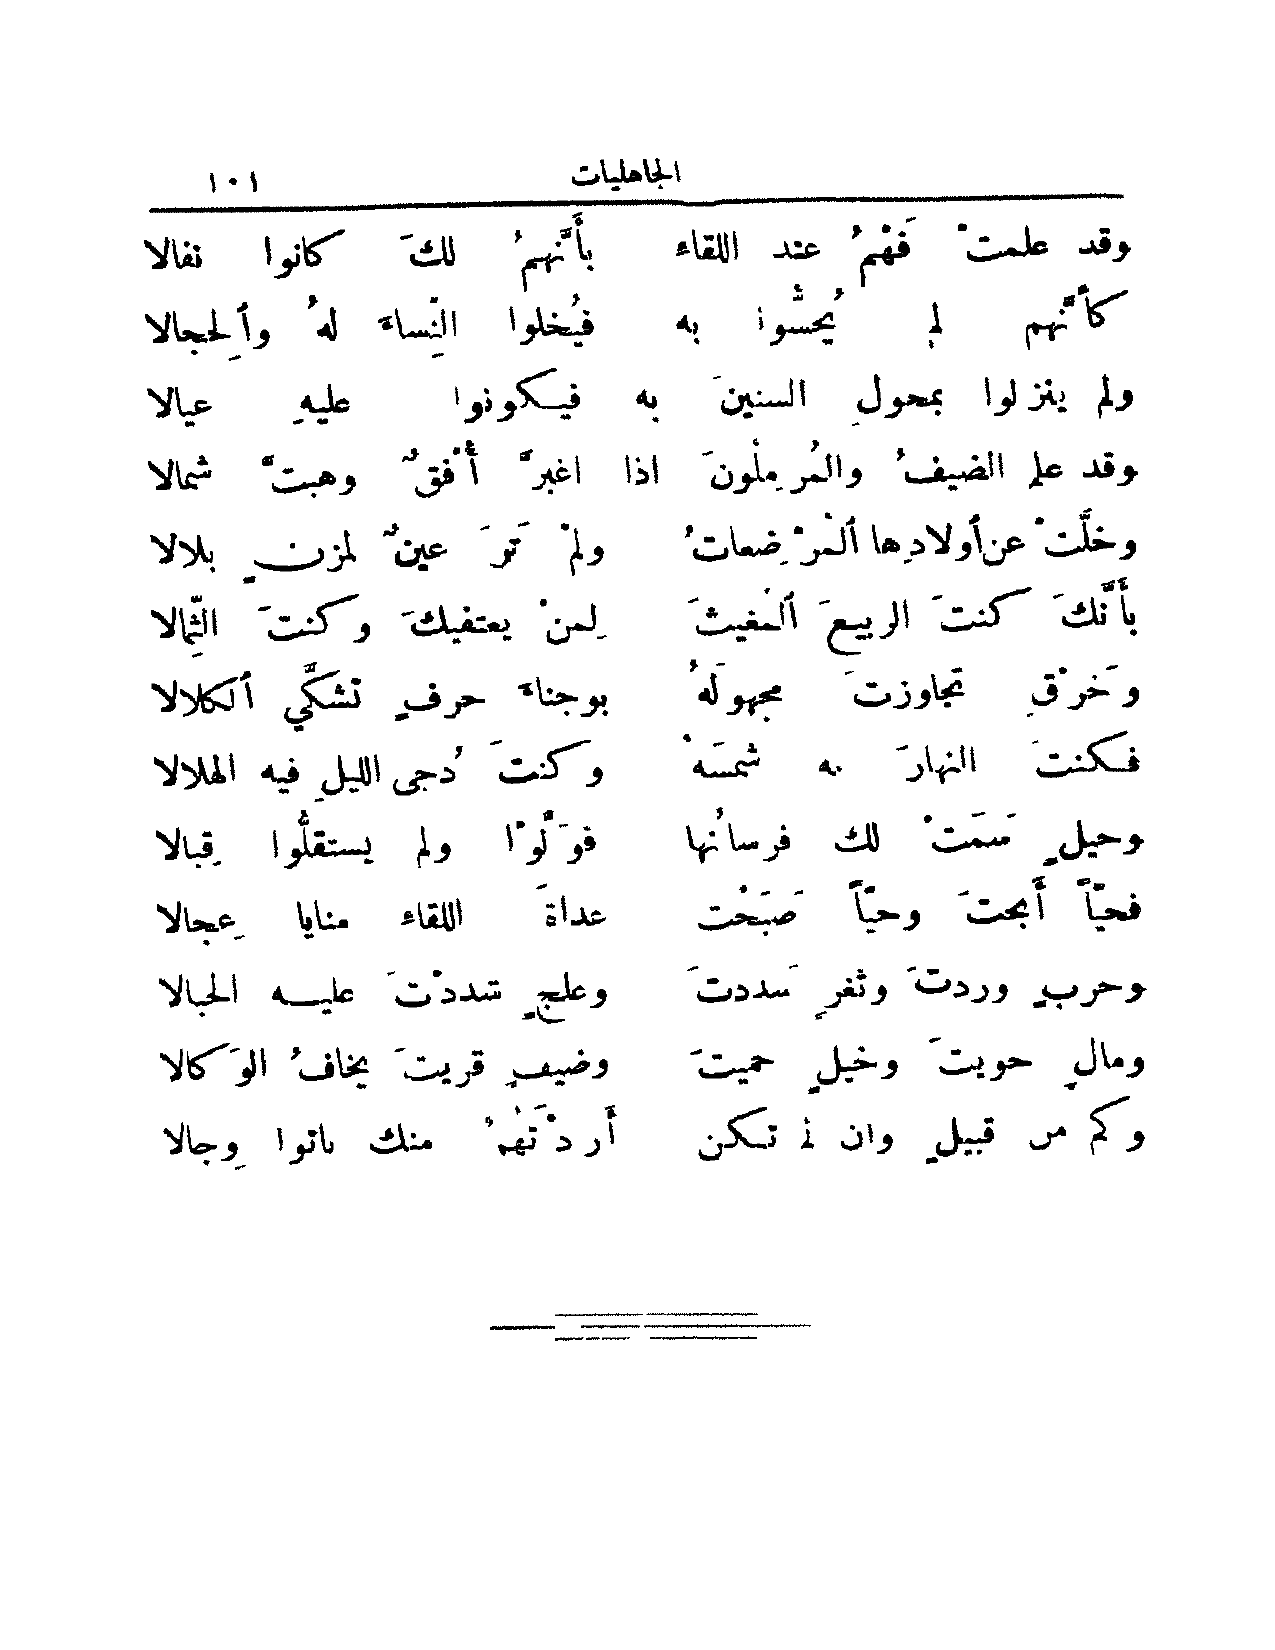 الجاهليات ١٠١
وقد علمتْ فَهْمُ عند اللقاء بأَنَّهمُ لكَ كانوا نفالا
كأَنَّهم لم يُحسُّوا به فيُخلوا النِّساءَ لهُ وألحِجالا
ولم ينزلوا بمحولِ السنينَ به فيكونوا عليهِ عيالا
وقد علم الضيفُ والمُرمِلْونَ اذا اغبرَّ أُفقٌ وهبتَّ شمالا
وخلَّتْ عن أولادِها ألمُرْضِعاتُ ولمْ تَرَ عينٌ لمزنٍ بلالا
بأَنَّكَ كنتَ الربيعَ ألمُغيثَ لِمنْ يعتفيكَ وكنتَ الثِّمالا
وخَرْقٍ تجاوزتَ مجهولَهُ بوجناءَ حرفٍ تشكَّي ألكلالا
فكنتَ النهارَ به شمسَهْ وكنتَ دُجى الليلِ فيه الهلالا
وخيلٍ سَمَتْ لك فرسانُها فوَلَّوْا ولم يستقلُّوا قِبالا
فحيّاً أَبحتَ وحيّاً صَبَحْتَ غداةَ اللقاء منايا عِجالا
وحربٍ وردتَ وثغرٍ سَددتَ وعلجٍ شددْتَ عليه الحبالا
ومالٍ حويتَ وخيلٍ حميتَ وضيفٍ قريتَ يخافُ الوَكالا
وكم من قبيلٍ وان لم تكن أَردْتَهُمُ منك باتوا وِجالا